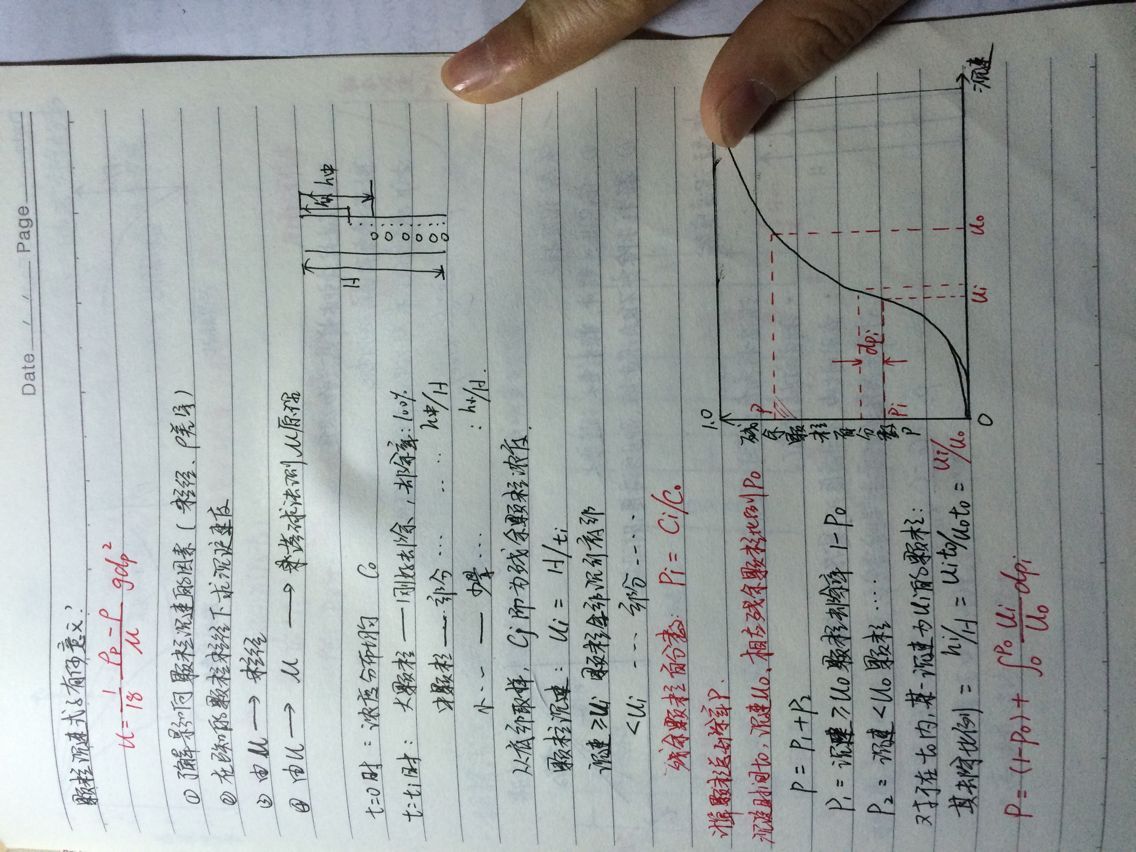 Date / / Page
颗粒沉速式子有何意义?
u = 1/18 ρp-ρ/μ gdp²
① 了解影响颗粒沉速的因素(粒径、ρ差等)
② 在已知颗粒粒径下求沉速度
③ 由u → 粒径
④ 由u → μ → 落球法测μ原理
t=0时:浓度分布均匀 C₀
t=ti时:大颗粒——刚好去除,去除率:100%
中颗粒——部分…… h中/H
小…——少量…… : h小/H.
H
h小
h中
从底部取样,Ci即为残余颗粒浓度.
颗粒沉速:ui = H/ti
沉速≥ui 颗粒全部沉于底部
<ui …… 部分……
残余颗粒百分数:Pi = Ci/C₀
计算颗粒总去除率P.
沉淀时间t₀,沉速u₀,相应残余颗粒比例P₀
P = P₁+P₂
P₁ = 沉速≥u₀颗粒去除率 1-P₀
P₂ = 沉速<u₀颗粒……
对于在t₀内,某一沉速为ui的颗粒:
其去除比例 = hi/H = uit₀/u₀t₀ = ui/u₀
P = (1-P₀) + ∫₀^P₀ ui/u₀ dpi
1.0
残余颗粒百分数P
P
dpi
Pi
0
ui
u₀
沉速